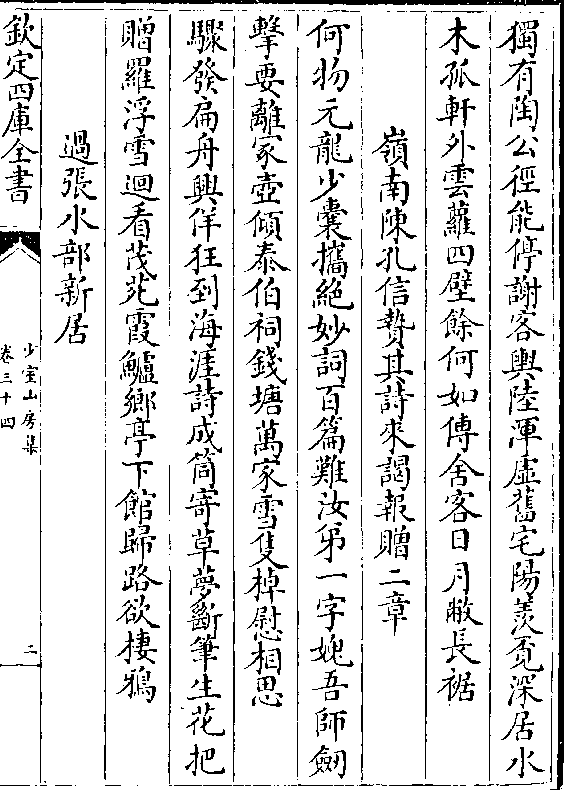 獨有陶公徑能停謝客輿陸渾虛舊宅陽羨覓深居水
木孤軒外雲蘿四壁餘何如傅舍客日月敝長裾
嶺南陳孔信贄其詩來謁報贈二章
何物元龍少囊攜絕妙詞百篇難汝第一字媿吾師劒
擊要離冢壺傾泰伯祠錢塘萬家雪隻棹慰相思
驟發扁舟興佯狂到海涯詩成筒寄草夢斷筆生花把
贈羅浮雪迴看茂苑霞鱸鄉亭下館歸路欲棲鴉
過張水部新居
欽定四庫全書
少室山房集
卷三十四
二